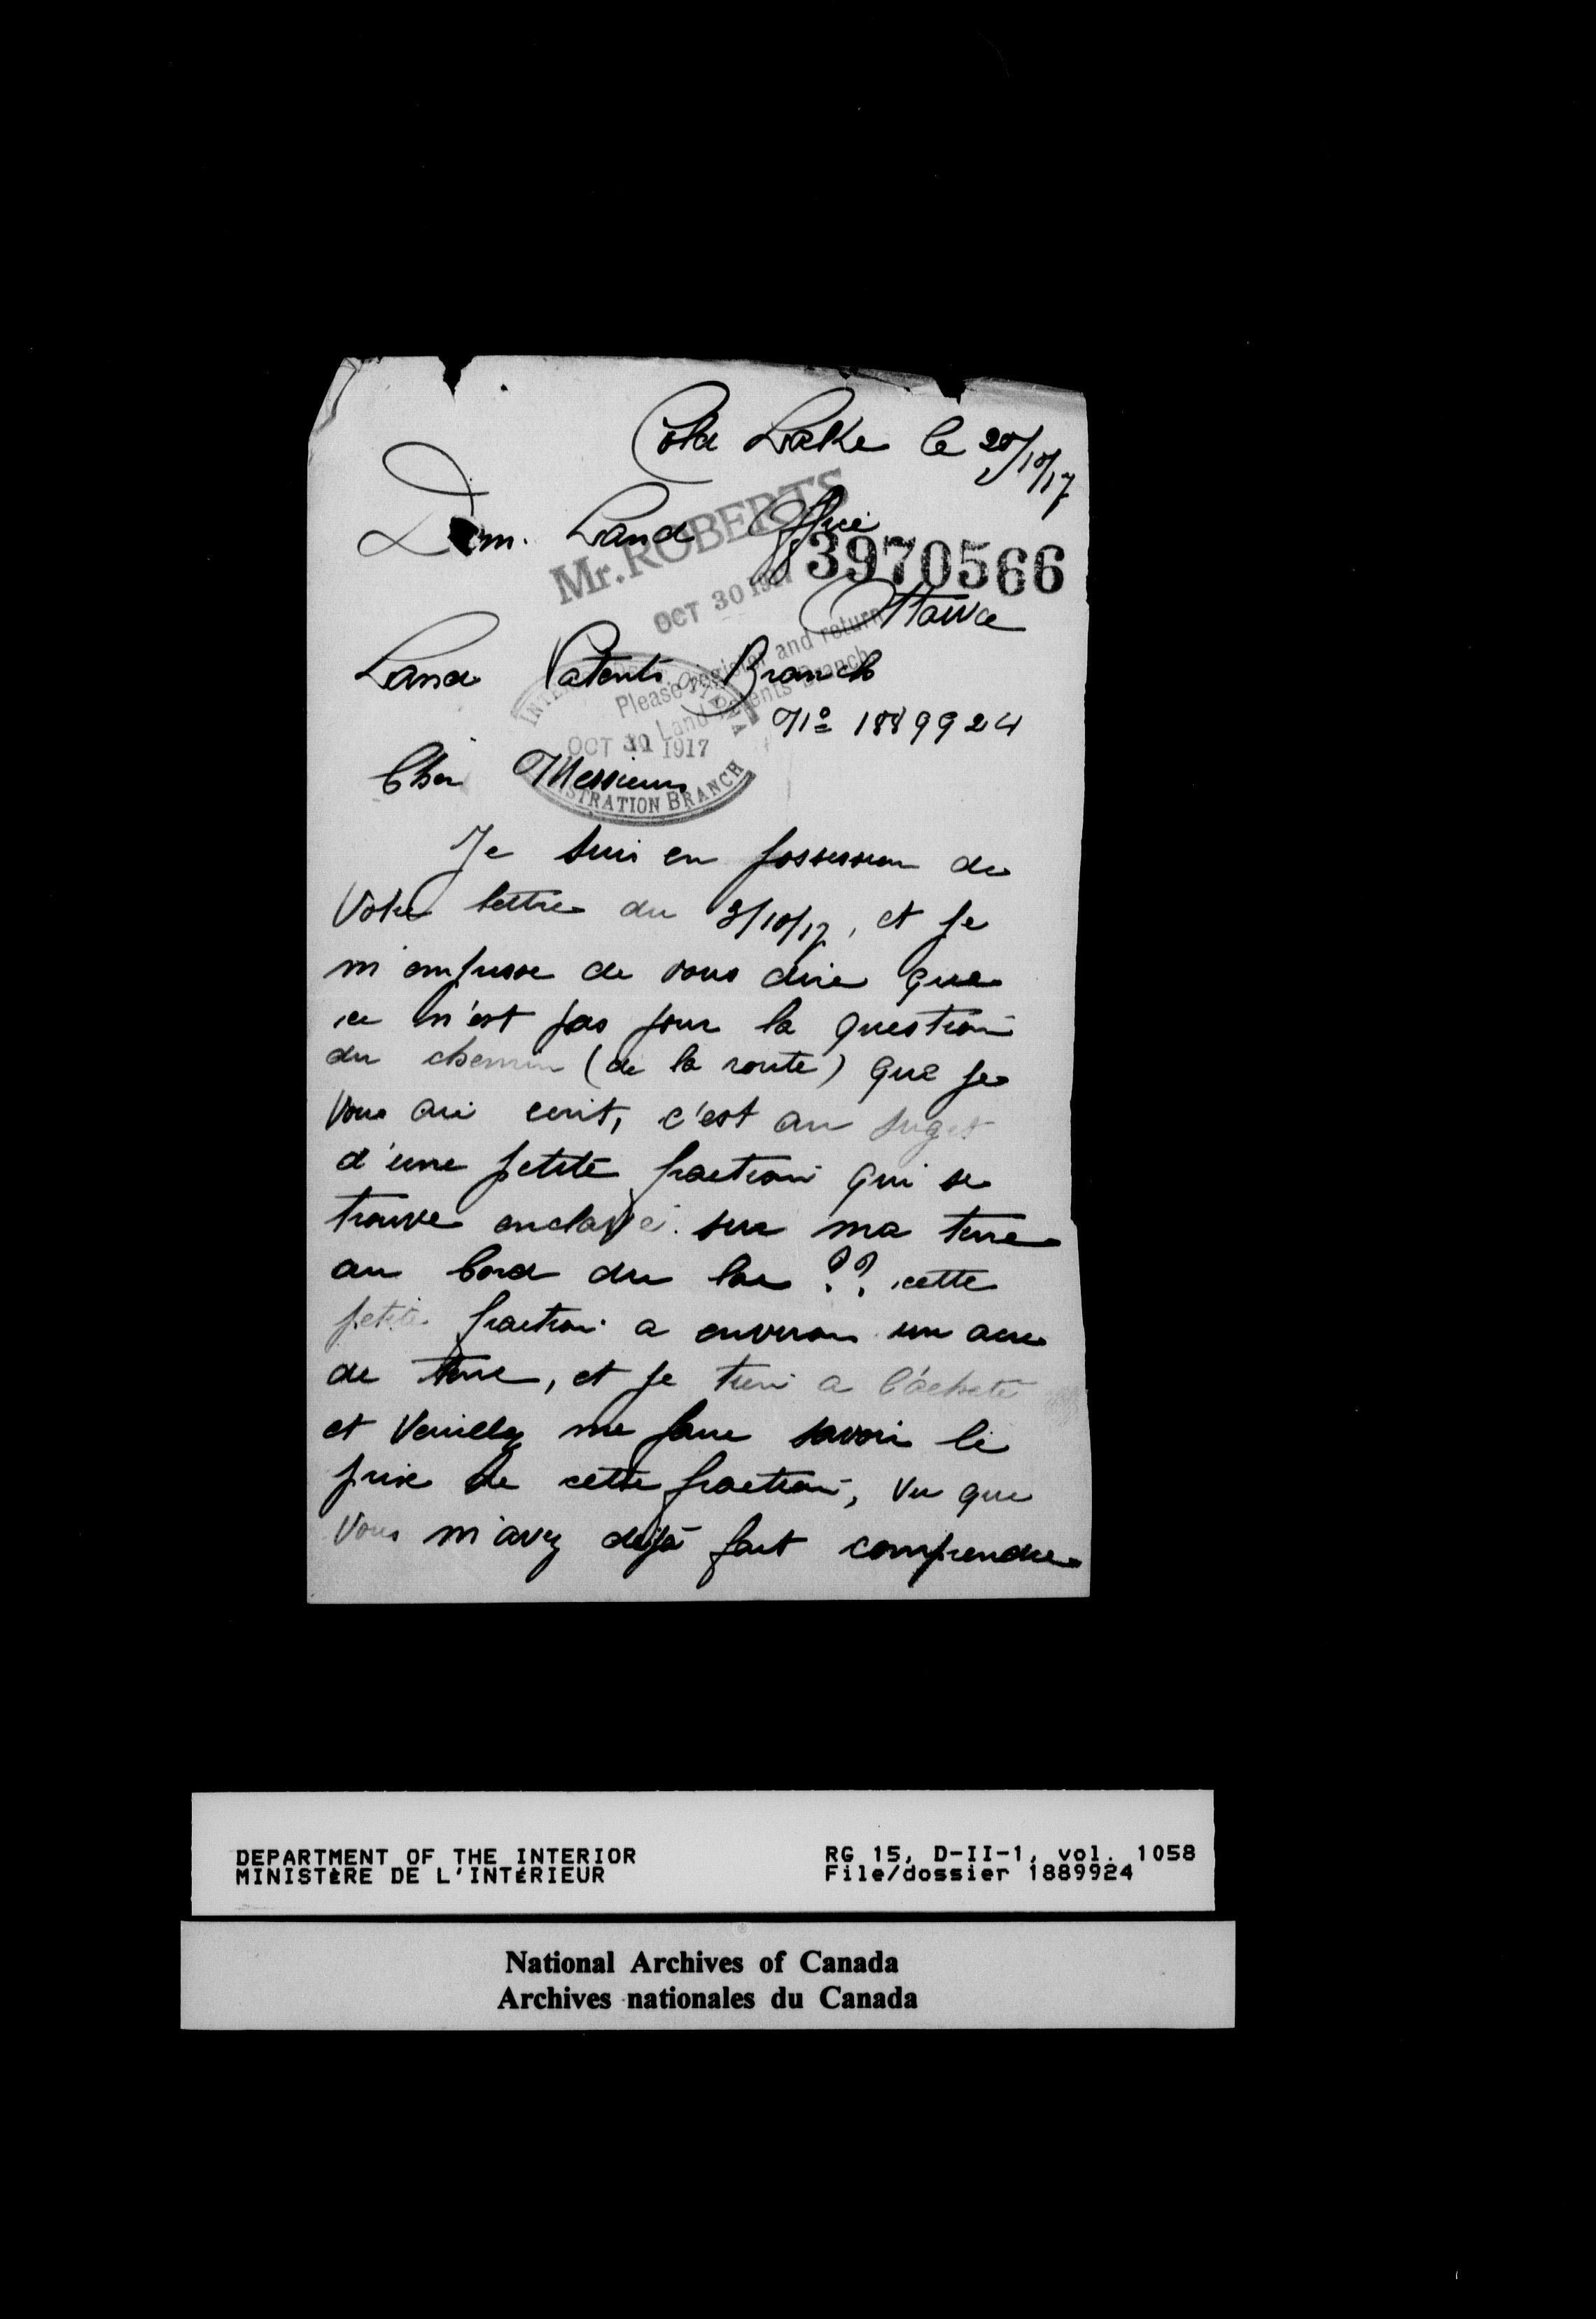 Cold Lake le 20/10/17
Dom. Land Office
Mr. ROBERTS
3970566
OCT 30 1917
Ottawa
Please register and return
Land Patents Branch
Land Patents Branch
No 1889924
INTERIOR OTTAWA
OCT 30 1917
STRATION BRANCH
Cher Messieurs
Je suis en possession de
Votre lettre du 3/10/17, et je
m'empresse de vous dire que
ce n'est pas pour la question
du chemin (de la route) que je
vous ai ecrit, c'est au suget
d'une petite fraction qui se
trouve enclavé sur ma terre
au bord du lac ?? cette
petite fraction a environ un acre
de terre, et je tien a l'acheté
et Veuillez me faire savoir le
prix de cette fraction, vu que
Vous m'avez dejà fait comprendre
DEPARTMENT OF THE INTERIOR
MINISTÈRE DE L'INTÉRIEUR
RG 15, D-II-1, vol. 1058
File/dossier 1889924
National Archives of Canada
Archives nationales du Canada